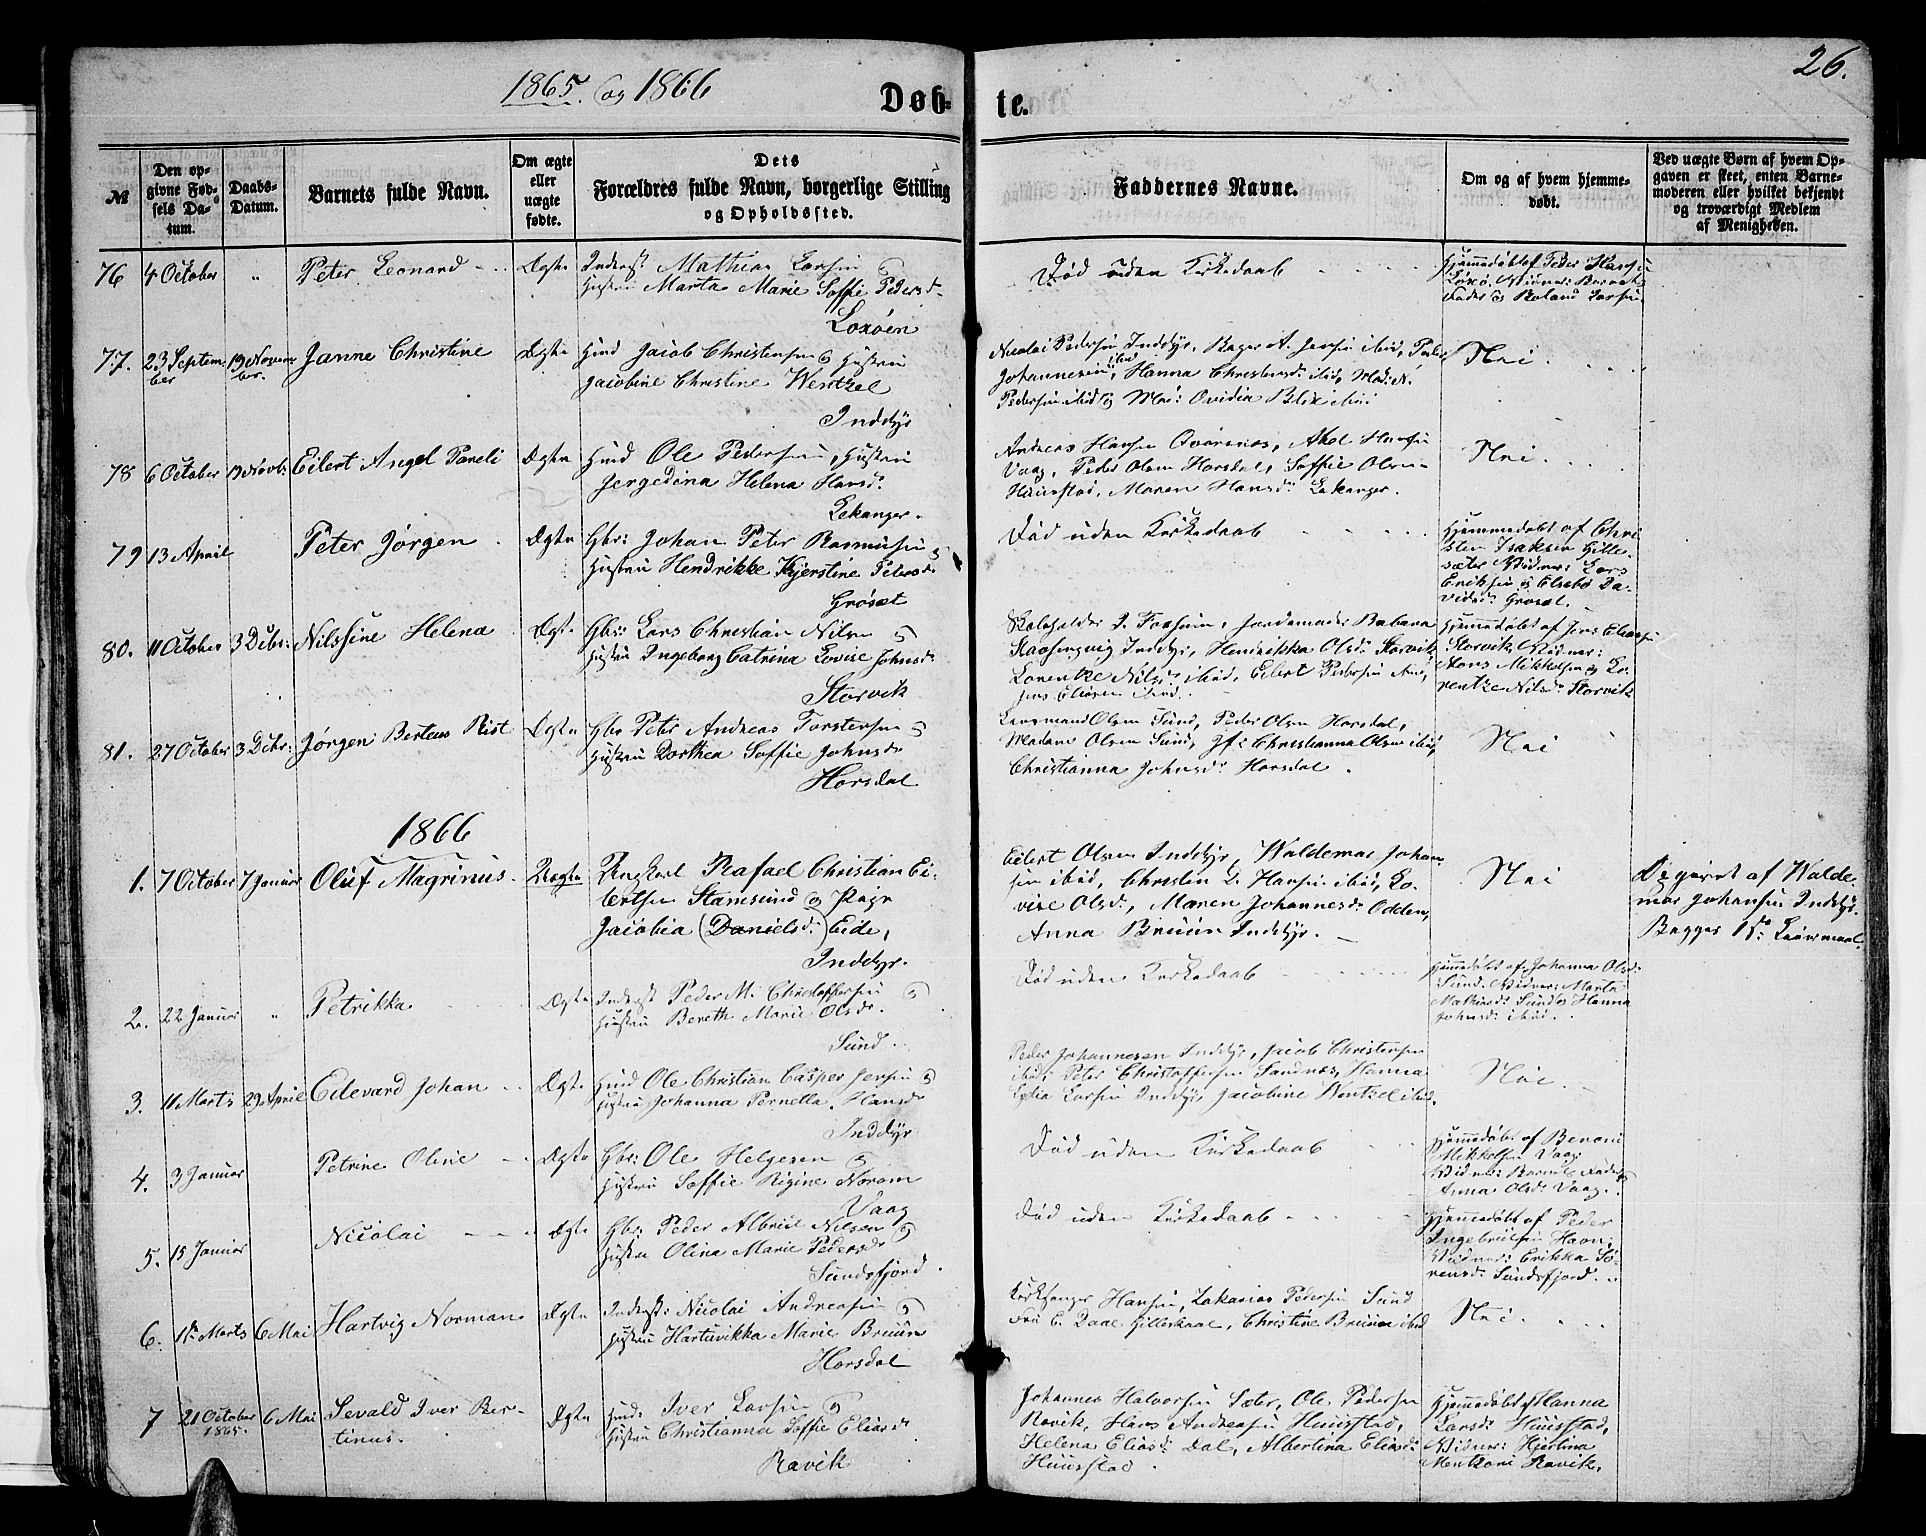 26.
1865. og 1866
Døb- te.
№
Den opgivne Fødsels Datum.
Daabs-Datum.
Barnets fulde Navn.
Om ægte eller uægte fødte.
Dets Forældres fulde Navn, borgerlige Stilling og Opholdssted.
Faddernes Navne.
Om og af hvem hjemmedøbt.
Ved uægte Børn af hvem Opgaven er skeet, enten Barnemoderen eller hvilket bekjendt og troværdigt Medlem af Menigheden.
76 4 October " Peter Leonard Ægte Inderst: Mathias Larsen og
Hustru Marta Marie Soffie Pedersd.
Loxøen
Død uden Kirkedaab
Hjemmedøbt af Peder Hansen
77. 23 September 19 November Janne Christine Ægte Hmd Jacob Christensen og Hustru
Jacobine Christine Wentzel
Inddyr
Nicolai Pedersen Inddyr, Bager A. Jensen ibid, Peder
Johannesen ibid, Hanna Christensd. ibid, Mad: N.
Pedersen ibid og Mad: Ovidia Blix ibid
Nei.
78 6 October 19 Novbr: Eilert Angel Pareli Ægte Hmd Ole Pedersen, Hustru
Jergedina Helena Hansd.
Lekanger.
Andreas Hansen Qvarsnes, Axel Hansen
Vaag, Peder Olsen Horsdal, Soffie Olsen
Huusstad, Maren Hansd. Lekanger.
Nei.
79 13 April Peter Jørgen Ægte Gbr: Johan Peter Rasmusen og
Hustru Hendrikke Kjerstine Petersd.
Grøset
Død uden Kirkedaab
Hjemmedøbt af Chri-
sten Isaksen Gille-
sæter Vidner: Lars
Eriksen og Elsebe Da-
vidsd: Grøset.
80. 11 October 3 Decbr: Nilssine Helena Ægte Gbr: Lars Christian Nilsen og
Hustru Ingeborg Catrina Lovise Johnsd.
Storvik
Skoleholder I. Forsum, Jordemoder Barbara
Inddyr, Henrikka Olsd. Storvik,
Lorentze Nilsd. ibid, Eilert Pedersen
Jens Eliasen ibid.
Hjemmedøbt af Jens Eliasen
Storvik Vidner:
Hans Mikkelsen og Lo-
rentze Nilsd. Storvik
81. 27 October 3 Decbr: Jørgen Berteus Rist Ægte Gbr Peter Andreas Torstensen og
Hustru Dorthea Soffie Johnsd.
Horsdal
Lensmand Olsen Sund, Peder Olsen Horsdal,
Madam Olsen Sund, Jf: Christianna Olsen ibid,
Christianna Johnsd. Horsdal.
Nei
1866
1. 7 October 7 Januar Oluf Magrinus. Uægte Ungkarl Rafael Christian Ei-
lertsen Stamsund og Pige
Jacobia (Danielsd:) Eide,
Inddyr.
Eilert Olsen Inddyr, Waldemar Johan-
sen ibid, Christen D. Hansen ibid, Lo-
vise Olsd., Maren Johannesd. Odden,
Anna Bruun Inddyr.
Nei
af Walde-
mar Johansen Inddyr.
Begges 1ste Leiermaal.
2. 22 Januar " Petrikka Ægte Inderst Peder M. Christoffersen og
Hustru Bereth Marie Olsd.
Sund
Død uden Kirkedaab
Hjemmedøbt af Johanna Olsd.
Sund. Vidner: Marta
Mathiasd. Sund og Hanna
Johnsd. ibid.
3. 11 Marts 29 April Edevard Johan Ægte Hmd Ole Christian Casper Jensen og
Hustru Johanna Pernella Hansd.
Inddyr
Peder Johannesen Inddyr, Jacob Christensen
ibid, Peter Christoffersen Sandnes, Hanna
Lydia Larsen Inddyr, Jacobine Wentzel ibid.
Nei.
4. 3 Januar Petrine Oline Ægte Gbr: Ole Helgesen og
Hustru Soffie Rigine Norom
Vaag
Død uden Kirkedaab
Hjemmedøbt af Benoni
Mikkelsen Vaag
Vidner: Barnets Fader og
Anna Olsd. Vaag.
5. 15 Januar Nicolai Ægte Gbr: Peder Albriet Nilsen og
Hustru Olina Marie Pedersd.
Sundsfjord.
Død uden Kirkedaab
Hjemmedøbt af Peder
Ingebrigtsen Havn,
Vidner: Erikka Sø-
rensd. Sundsfjord.
6. Marts 6 Mai Hartvig Norman Ægte Inderst: Nicolai Andreasen og
Hustru Hartvikka Marie Bruun
Horsdal
Kirksanger Hansen, Zakarias Pedersen Sund
Fru C. Daae Gilleskaal, Christine Bruun ibid
Nei.
7 21 October 1865. 6 Mai Sevald Iver Ber-
tinus. Ægte Hmd: Iver Larsen og
Hustru Christianna Soffie Eliasd.
Ravik
Johannes Halvorsen Sæter, Ole Pedersen
Ravik, Hans Andreasen Huusstad,
Helena Eliasd. Dal, Albertina Eliasd.
Huusstad.
Hjemmedøbt af Hanna
Larsd. Huusstad,
Vidner: Hjertina
Mentzoni Ravik.